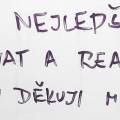 NEJLEPŠ
VAT A REA
DĚKUJI